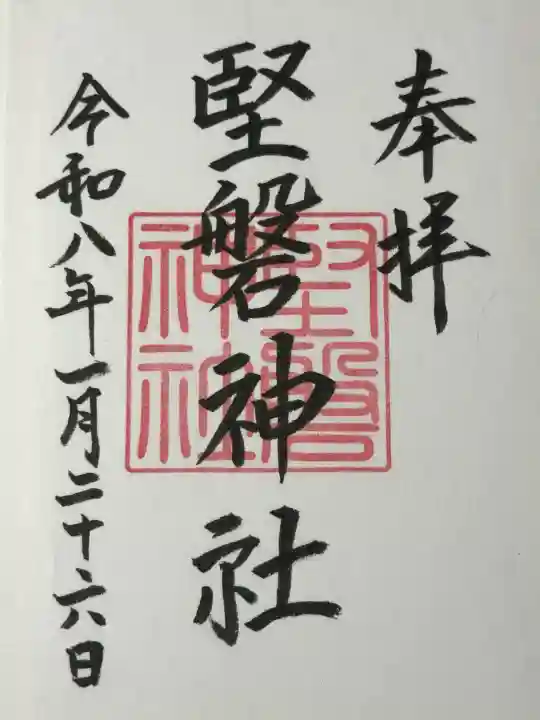 奉拝
堅磐神社
堅磐神社
令和八年一月二十六日